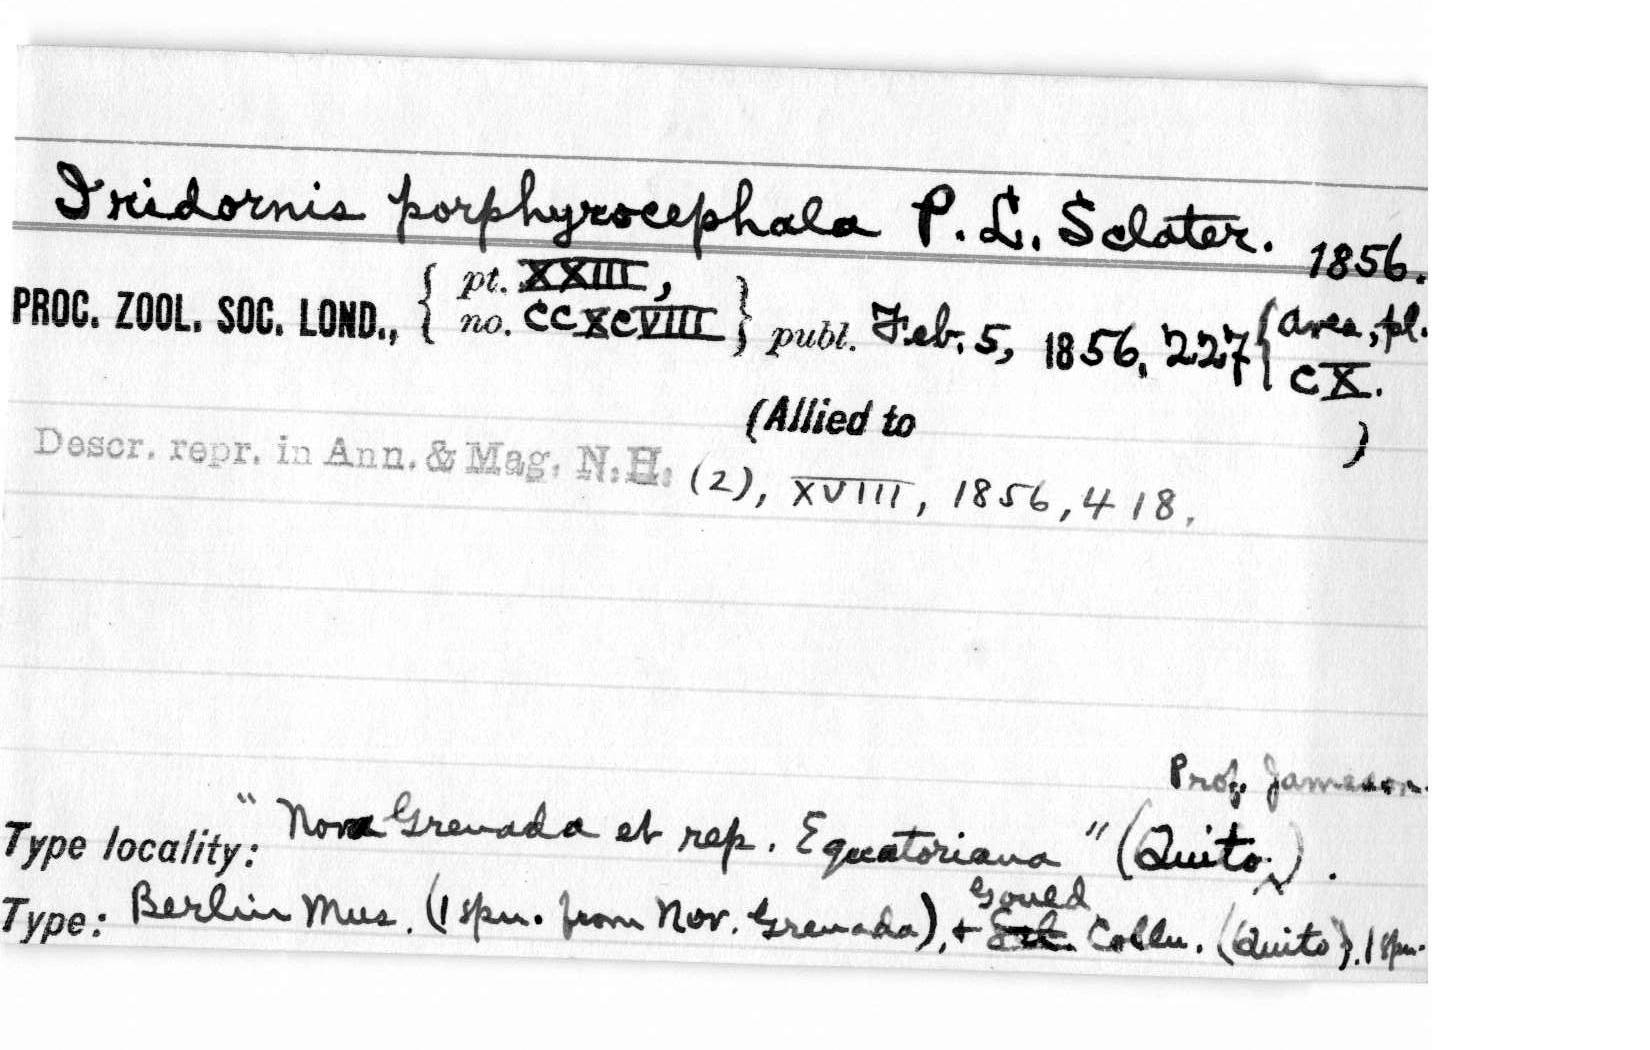 Iridornis porphyrocephala P. L. Sclater. 1856.
PROC. ZOOL. SOC. LOND., { pt. XXIII, no. CCXCVIII } publ. Feb. 5, 1856, 227 { Aves, pl. CX.
(Allied to )
Descr. repr. in Ann. & Mag. N.H. (2), XVIII, 1856, 418.
Prof. Jameson
Type locality: "Nova Grenada et rep. Equatoriana" (Quito).
Gould
Type: Berlin Mus. (1 spn. from Nov. Grenada), + Colln. (Quito). 1 spn.